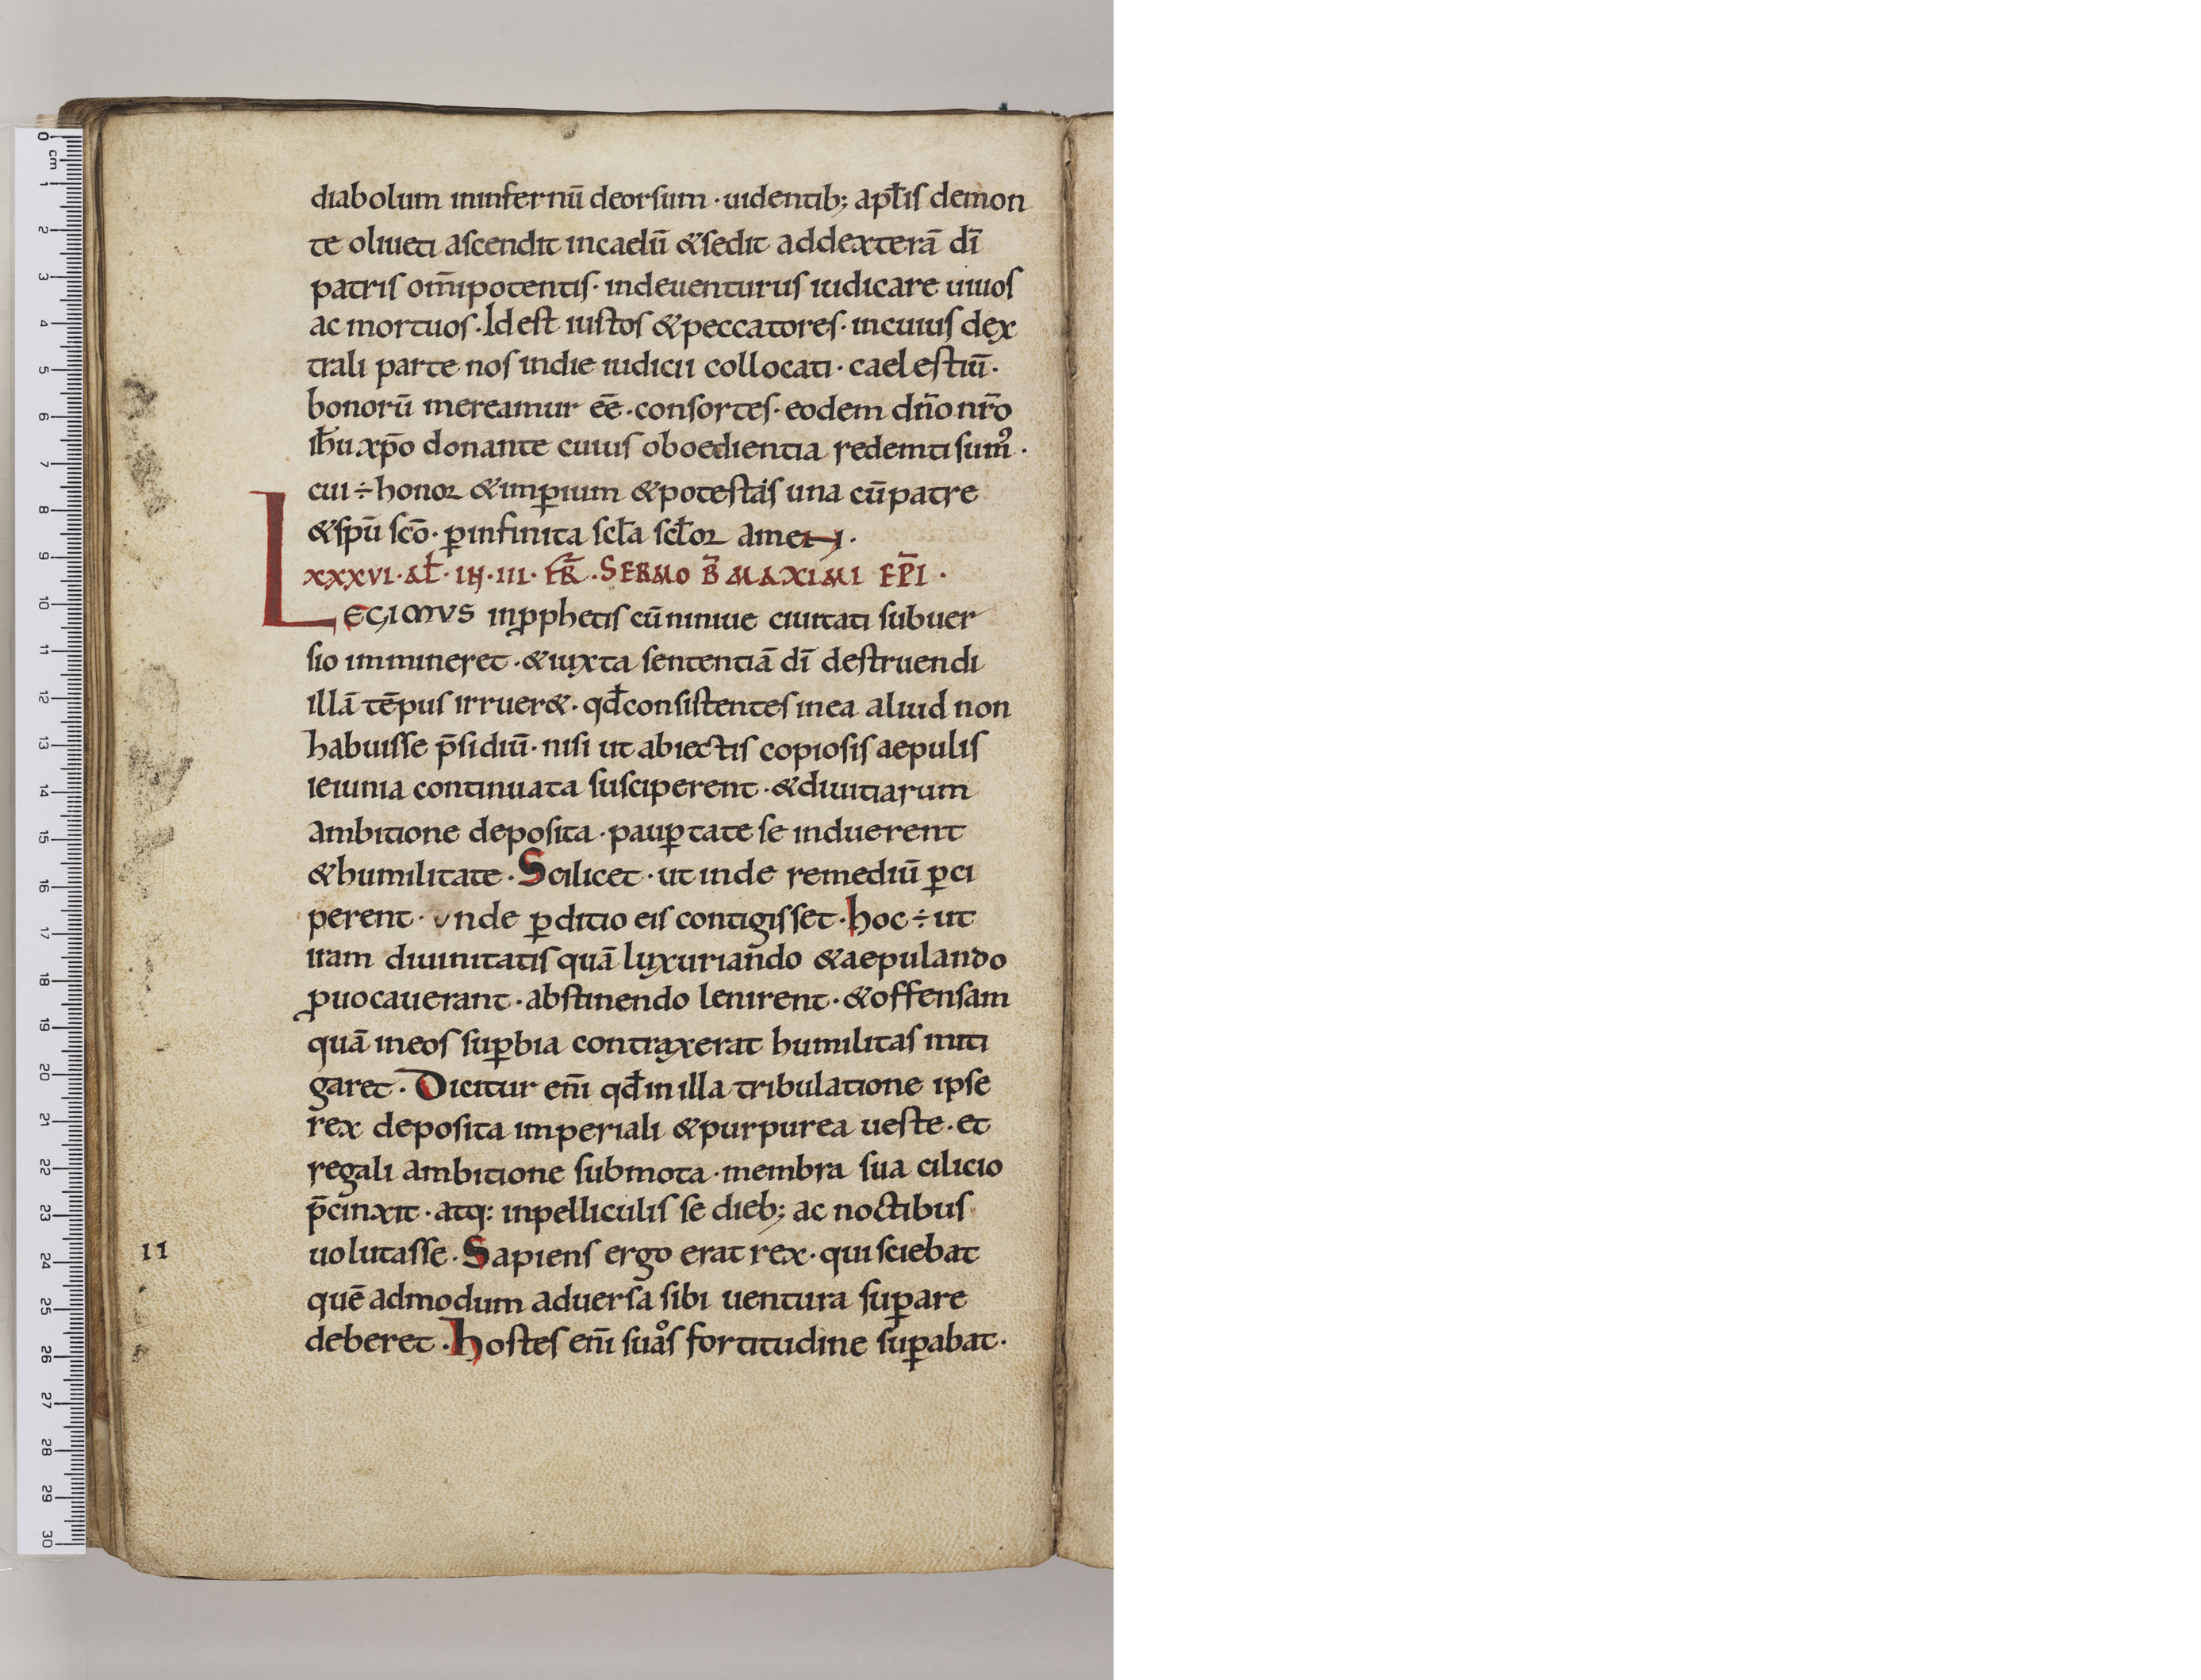 diabolum ininfernū deorsum · uidentib; apl̄is demon
te oliueti ascendit incaelū &sedit addexterā dī
patris om̄ipotentis · indeuenturus iudicare uiuos
ac mortuos · Idest iustos &peccatores · incuius dex
trali parte nos indie iudicii collocati · caelestiū ·
bonorū mereamur ēē · consortes · eodem dn̄o nr̄o
ih̄u xp̄o donante cuius oboedientia redemti sumꝰ ·
cui ÷ honoꝝ &imꝑium &potestas una cū patre
&sp̄u sc̄o · ꝑinfinita scl̄a scl̄oꝝ amen ·
LXXXVI · AL̄ · IN · III · FR̄ · SERMO B̄ MAXIMI EP̄I ·
LEGIMVS inꝓphetis cū niniue ciuitati subuer
sio immineret · &iuxta sententiā dī destruendi
illā tēpus irruer& · qd̄ consistentes inea aliud non
habuisse p̄sidiū · nisi ut abiectis copiosis aepulis
ieiunia continuata susciperent · &diuitiarum
ambitione deposita · pauꝑtate se induerent
&humilitate · Scilicet · ut inde remediū ꝑci
perent · vnde ꝑditio eis contigisset · hoc ÷ ut
iram diuinitatis quā luxuriando &aepulando
ꝓuocauerant · abstinendo lenirent · &offensam
quā ineos suꝑbia contraxerat humilitas miti
garet · Dicitur eni̅ qd̄ in illa tribulatione ipse
rex deposita imperiali &purpurea ueste · et
regali ambitione submota · membra sua cilicio
p̄cinxit · atq: inpelliculis se dieb; ac noctibus
11
uolutasse · Sapiens ergo erat rex · qui sciebat
quē admodum aduersa sibi uentura suꝑare
deberet · Hostes eni̅ suos fortitudine suꝑabat ·
0 cm 1 2 3 4 5 6 7 8 9 10 11 12 13 14 15 16 17 18 19 20 21 22 23 24 25 26 27 28 29 30